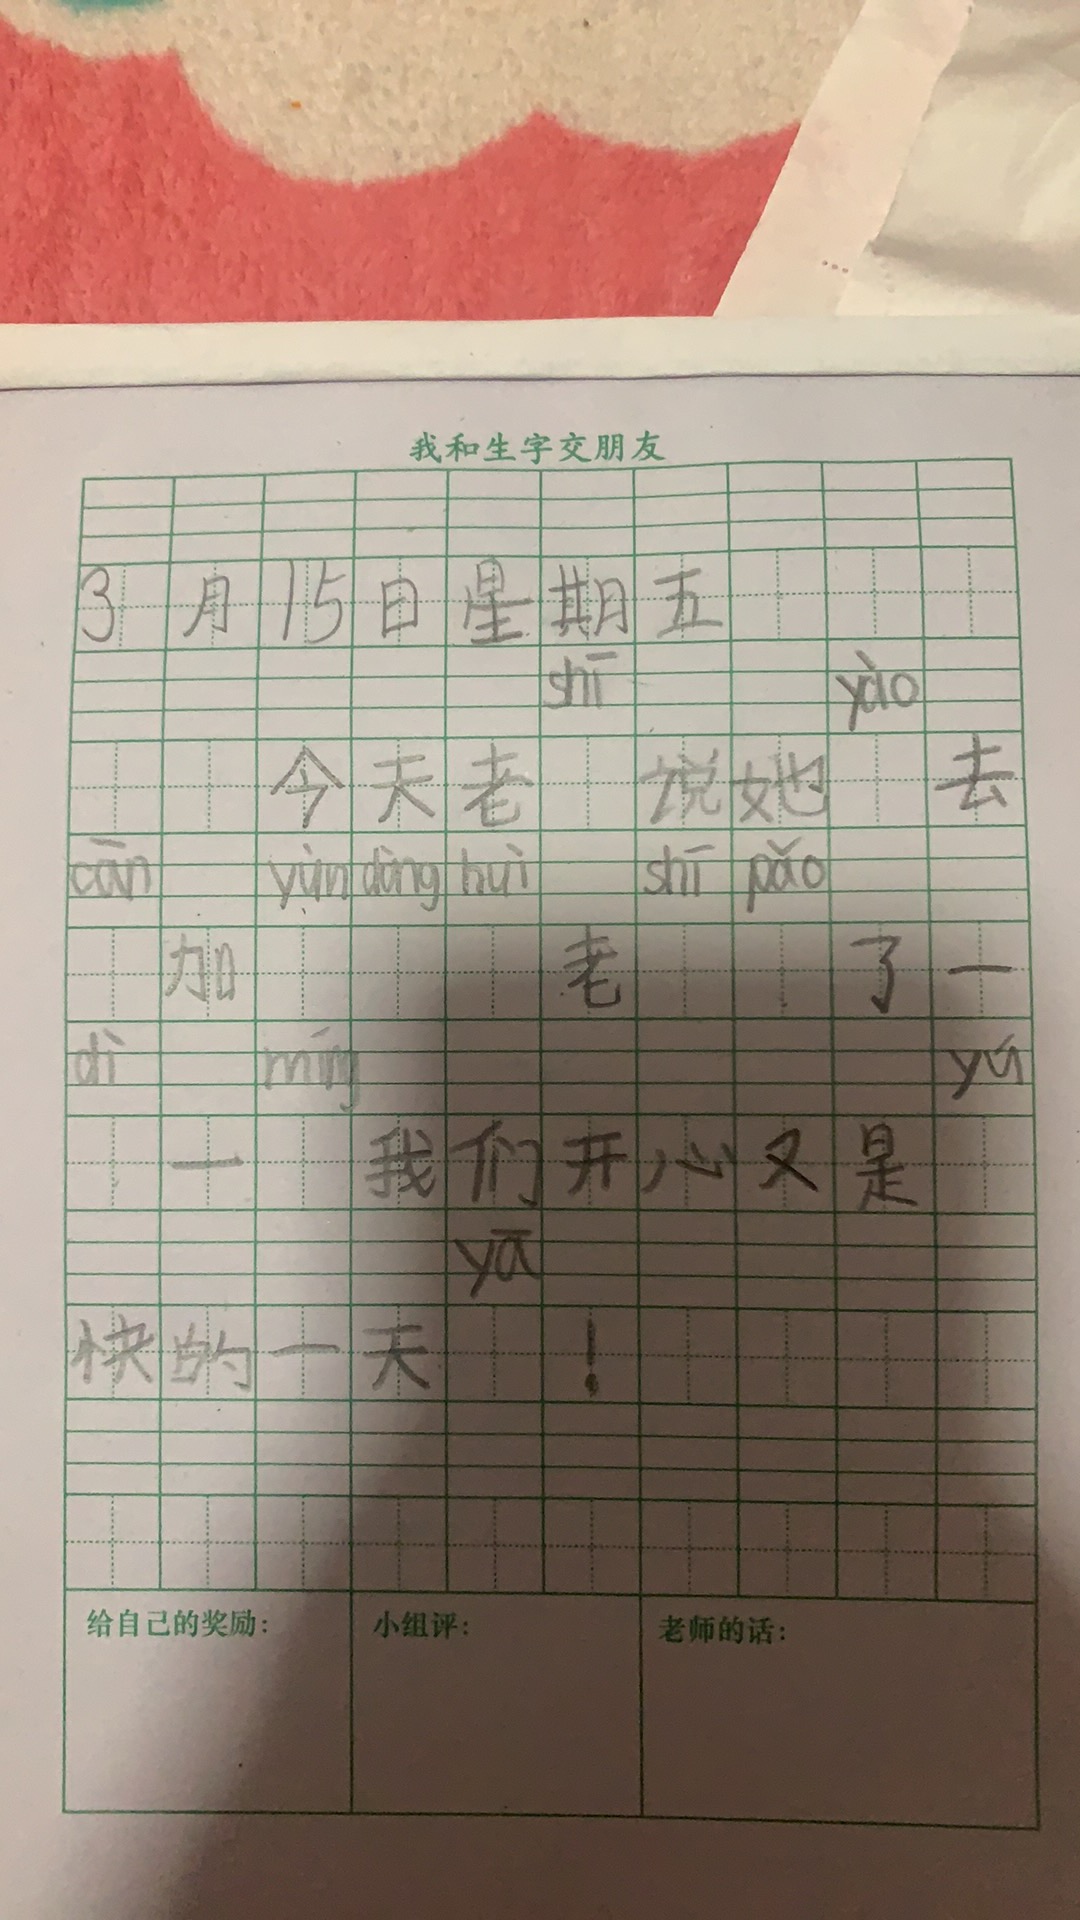 我和生字交朋友
3月15日星期五
shī yào
今天老 说她 去
cān yùn dòng huì shī pǎo
加 老 了一
dì míng yú
一 我们开心又是
yā
快的一天 !
给自己的奖励: 小组评: 老师的话: